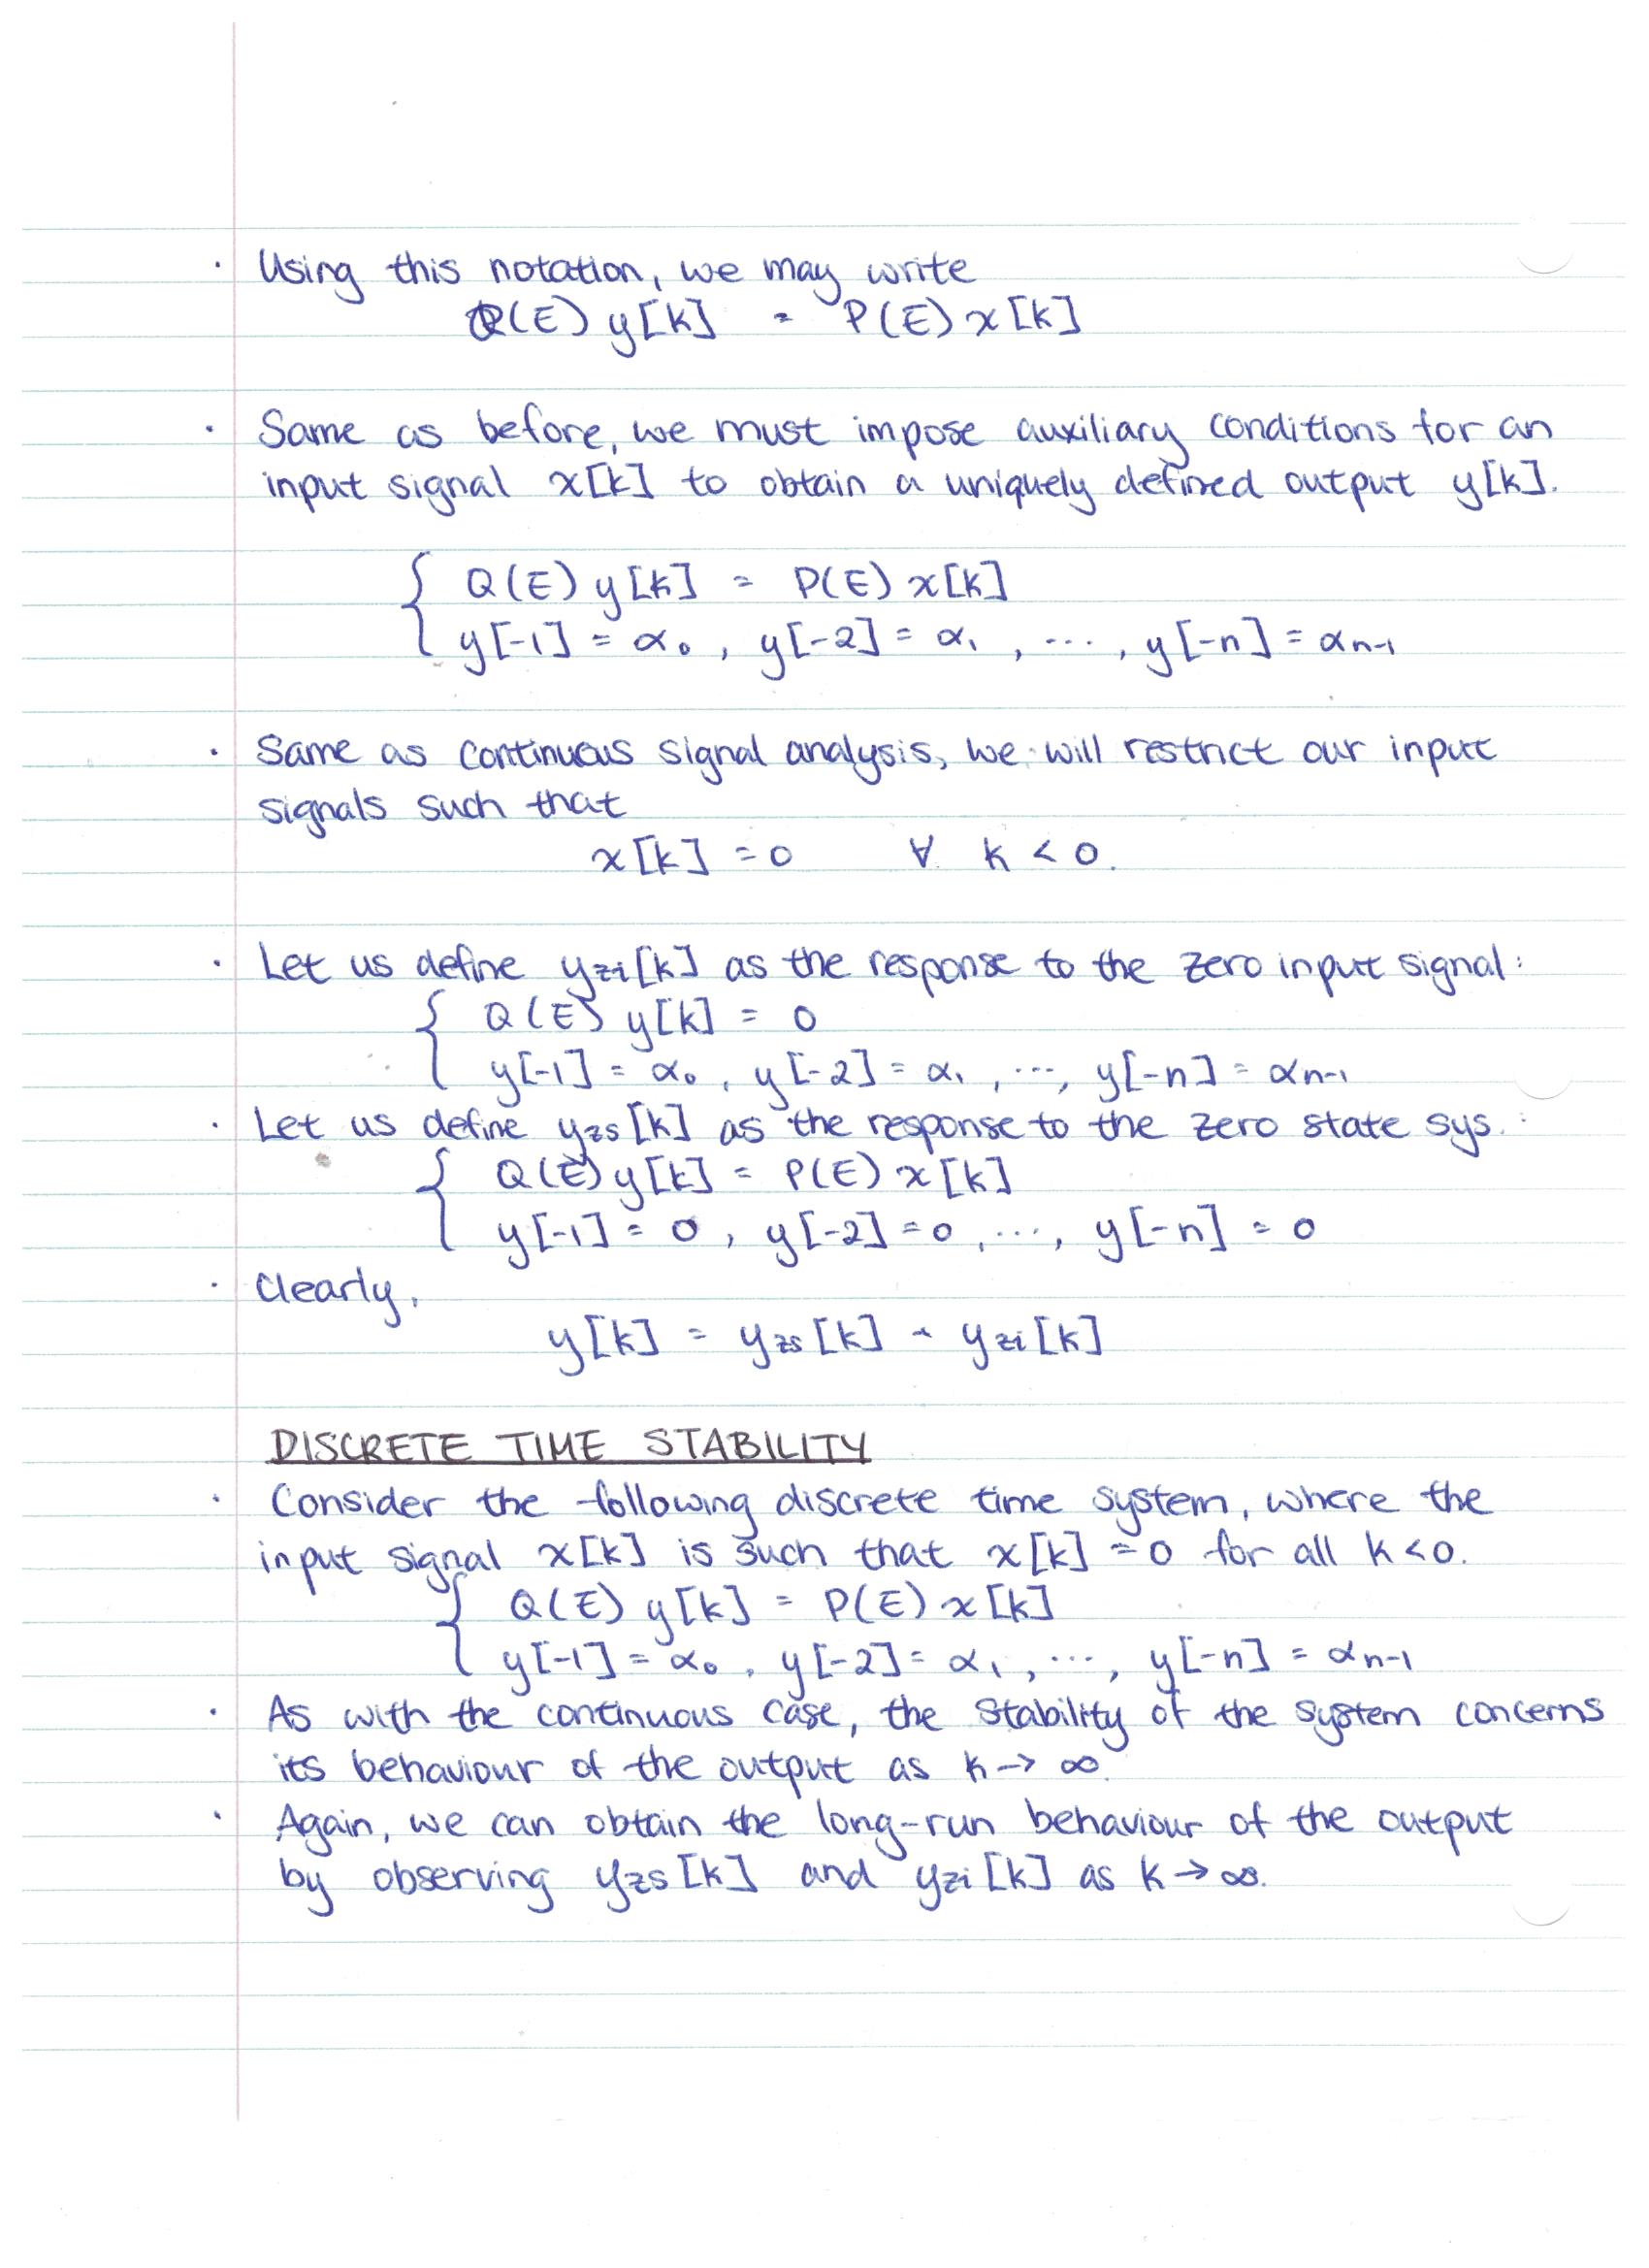 · Using this notation, we may write
Q(E) y[k] = P(E) x[k]
· Same as before, we must impose auxiliary conditions for an
input signal x[k] to obtain a uniquely defined output y[k].
{ Q(E) y[k] = P(E) x[k]
y[-1] = α₀, y[-2] = α₁, ..., y[-n] = αn-1
· Same as continuous signal analysis, we will restrict our input
signals such that
x[k] = 0 ∀ k < 0.
· Let us define yzi[k] as the response to the zero input signal:
{ Q(E) y[k] = 0
y[-1] = α₀, y[-2] = α₁, ..., y[-n] = αn-1
· Let us define yzs[k] as the response to the zero state sys. :
{ Q(E) y[k] = P(E) x[k]
y[-1] = 0, y[-2] = 0, ..., y[-n] = 0
· Clearly,
y[k] = yzs[k] + yzi[k]
DISCRETE TIME STABILITY
· Consider the following discrete time system, where the
input signal x[k] is such that x[k] = 0 for all k < 0.
{ Q(E) y[k] = P(E) x[k]
y[-1] = α₀, y[-2] = α₁, ..., y[-n] = αn-1
· As with the continuous case, the stability of the system concerns
its behaviour of the output as k → ∞.
· Again, we can obtain the long-run behaviour of the output
by observing yzs[k] and yzi[k] as k → ∞.